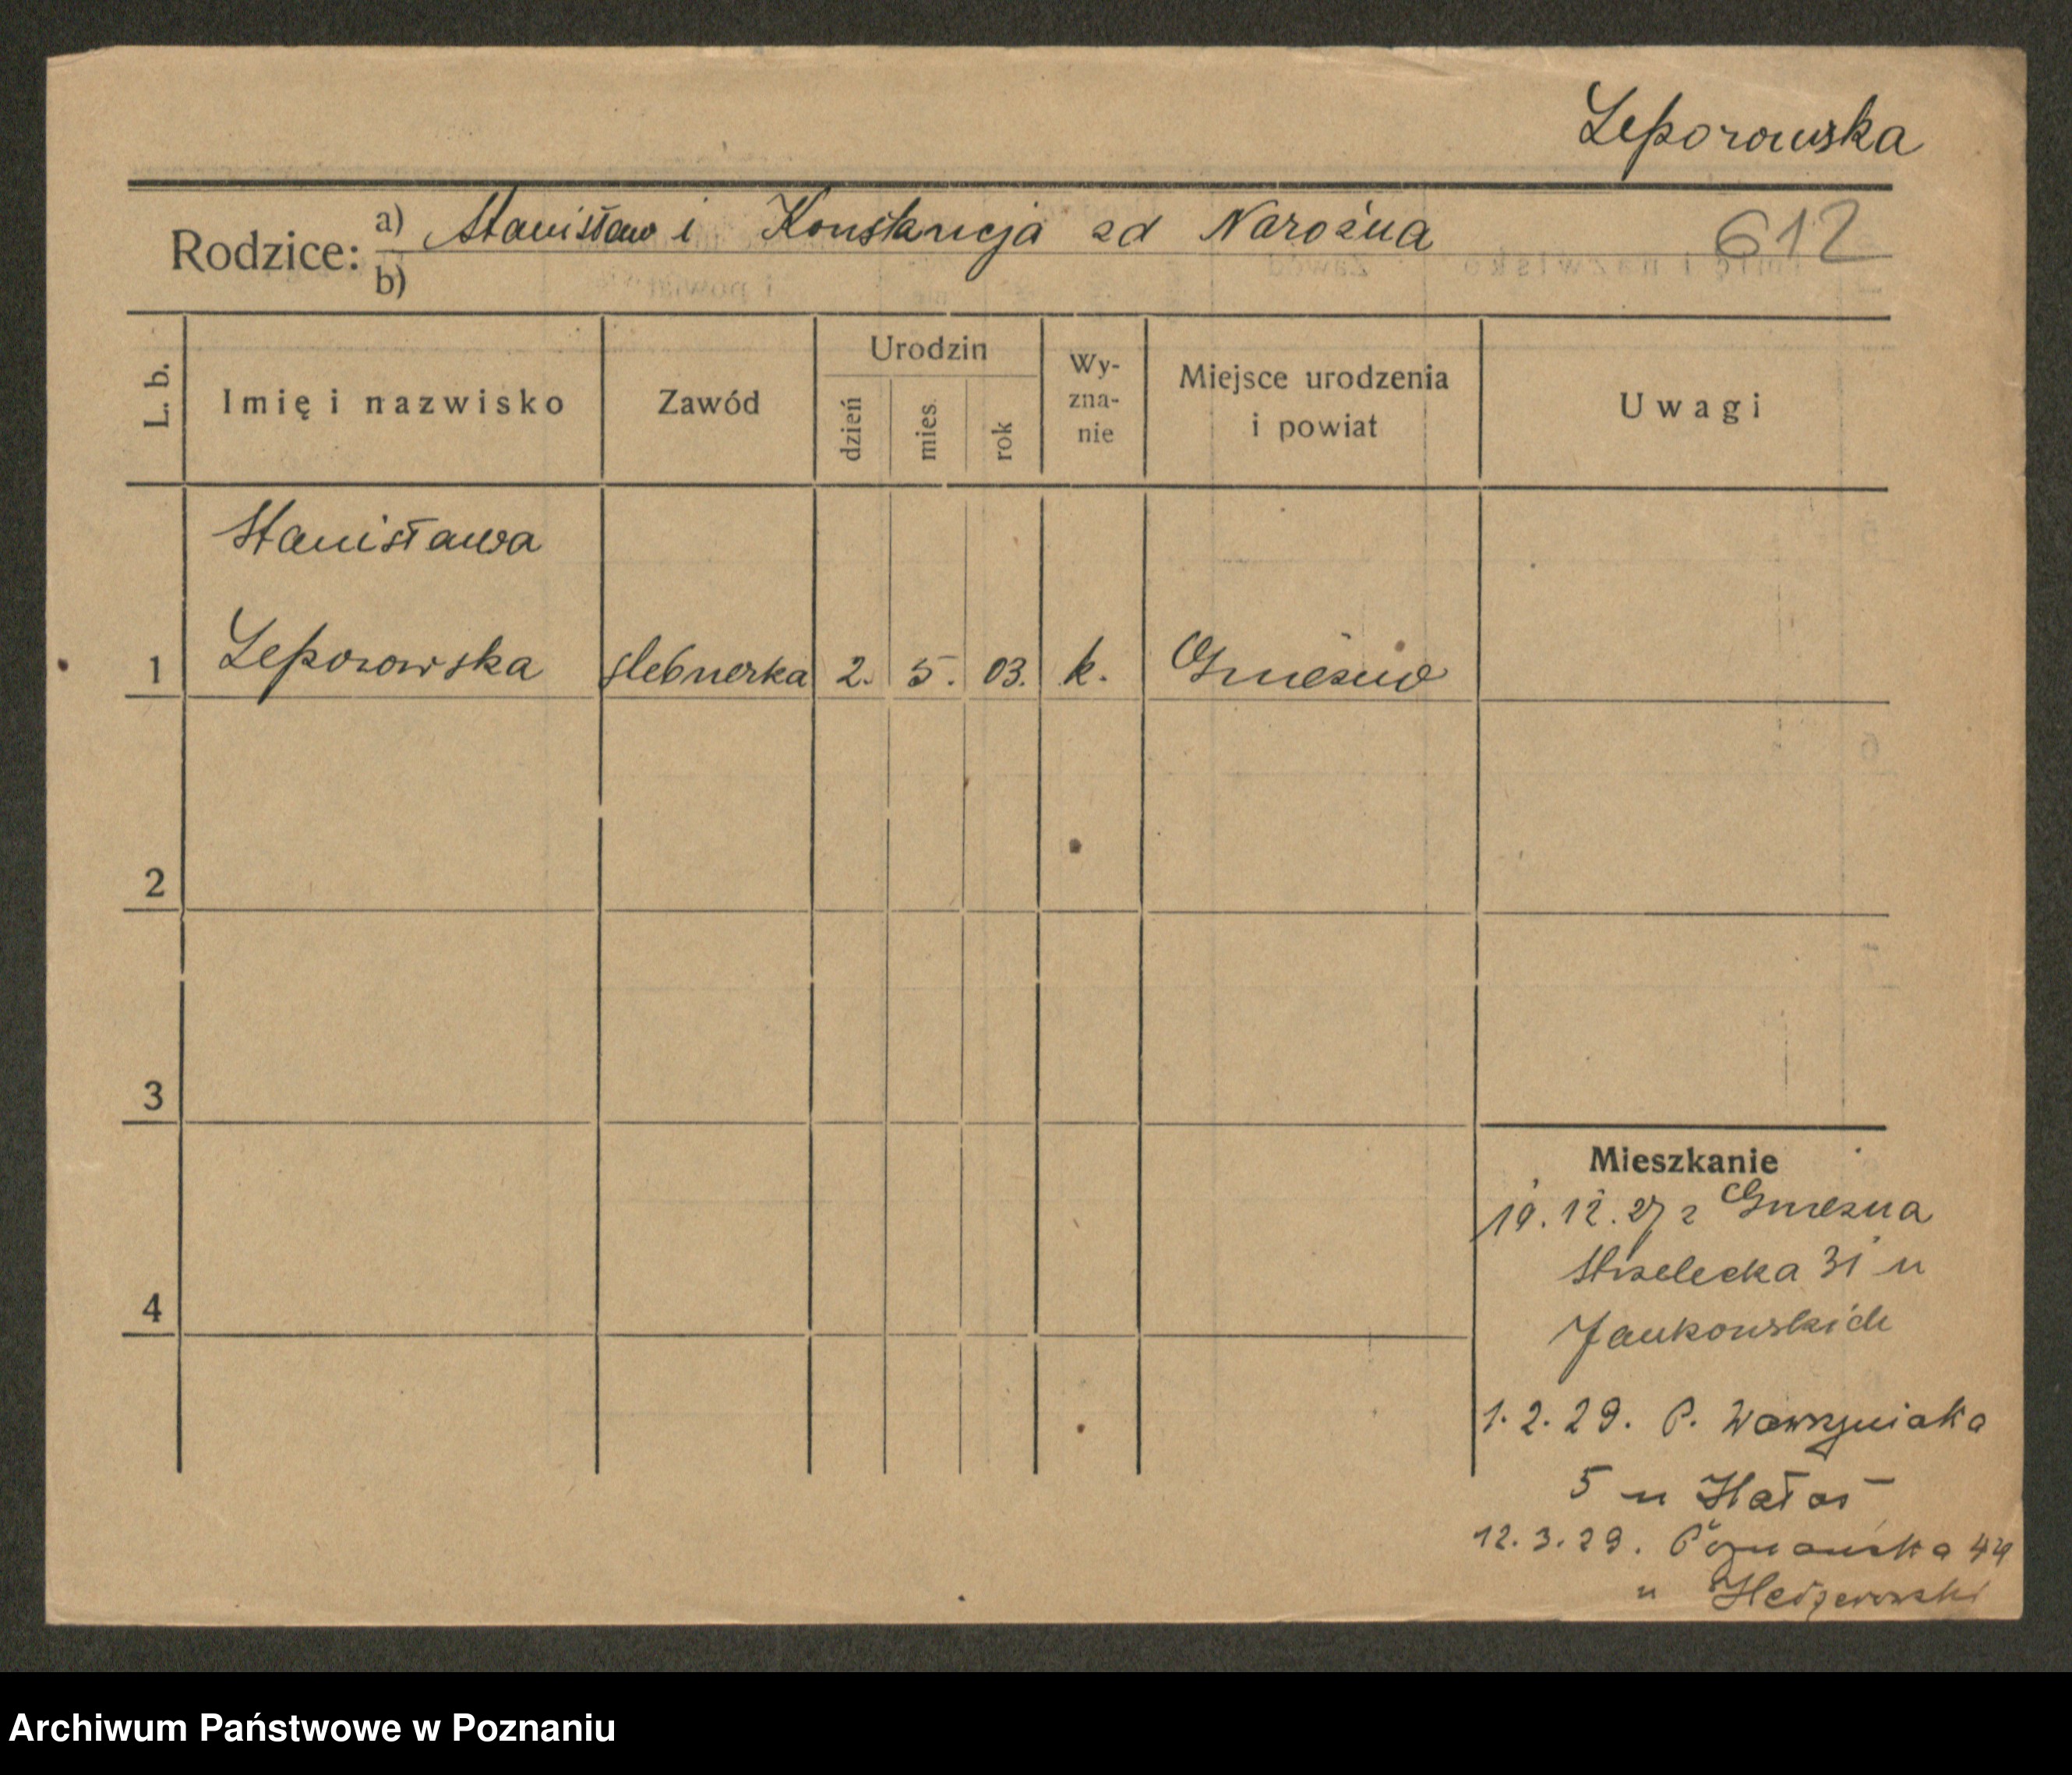 Leporowska
Rodzice: a) Stanisław i Konstancja zd Narożna 612
b)
L. b. Imię i nazwisko Zawód Urodzin dzień mies. rok Wy-zna-nie Miejsce urodzenia i powiat Uwagi
Stanisława
1 Leporowska 2. 5. 03. k. Gniezno
2
3
4
Mieszkanie
19. 12. 27 z Gniezna
Strzelecka 31 u
Jankowskich
1. 2. 29. P. Wawrzyniaka
5 u
12. 3. 29. Poznańska 44
u
Archiwum Państwowe w Poznaniu